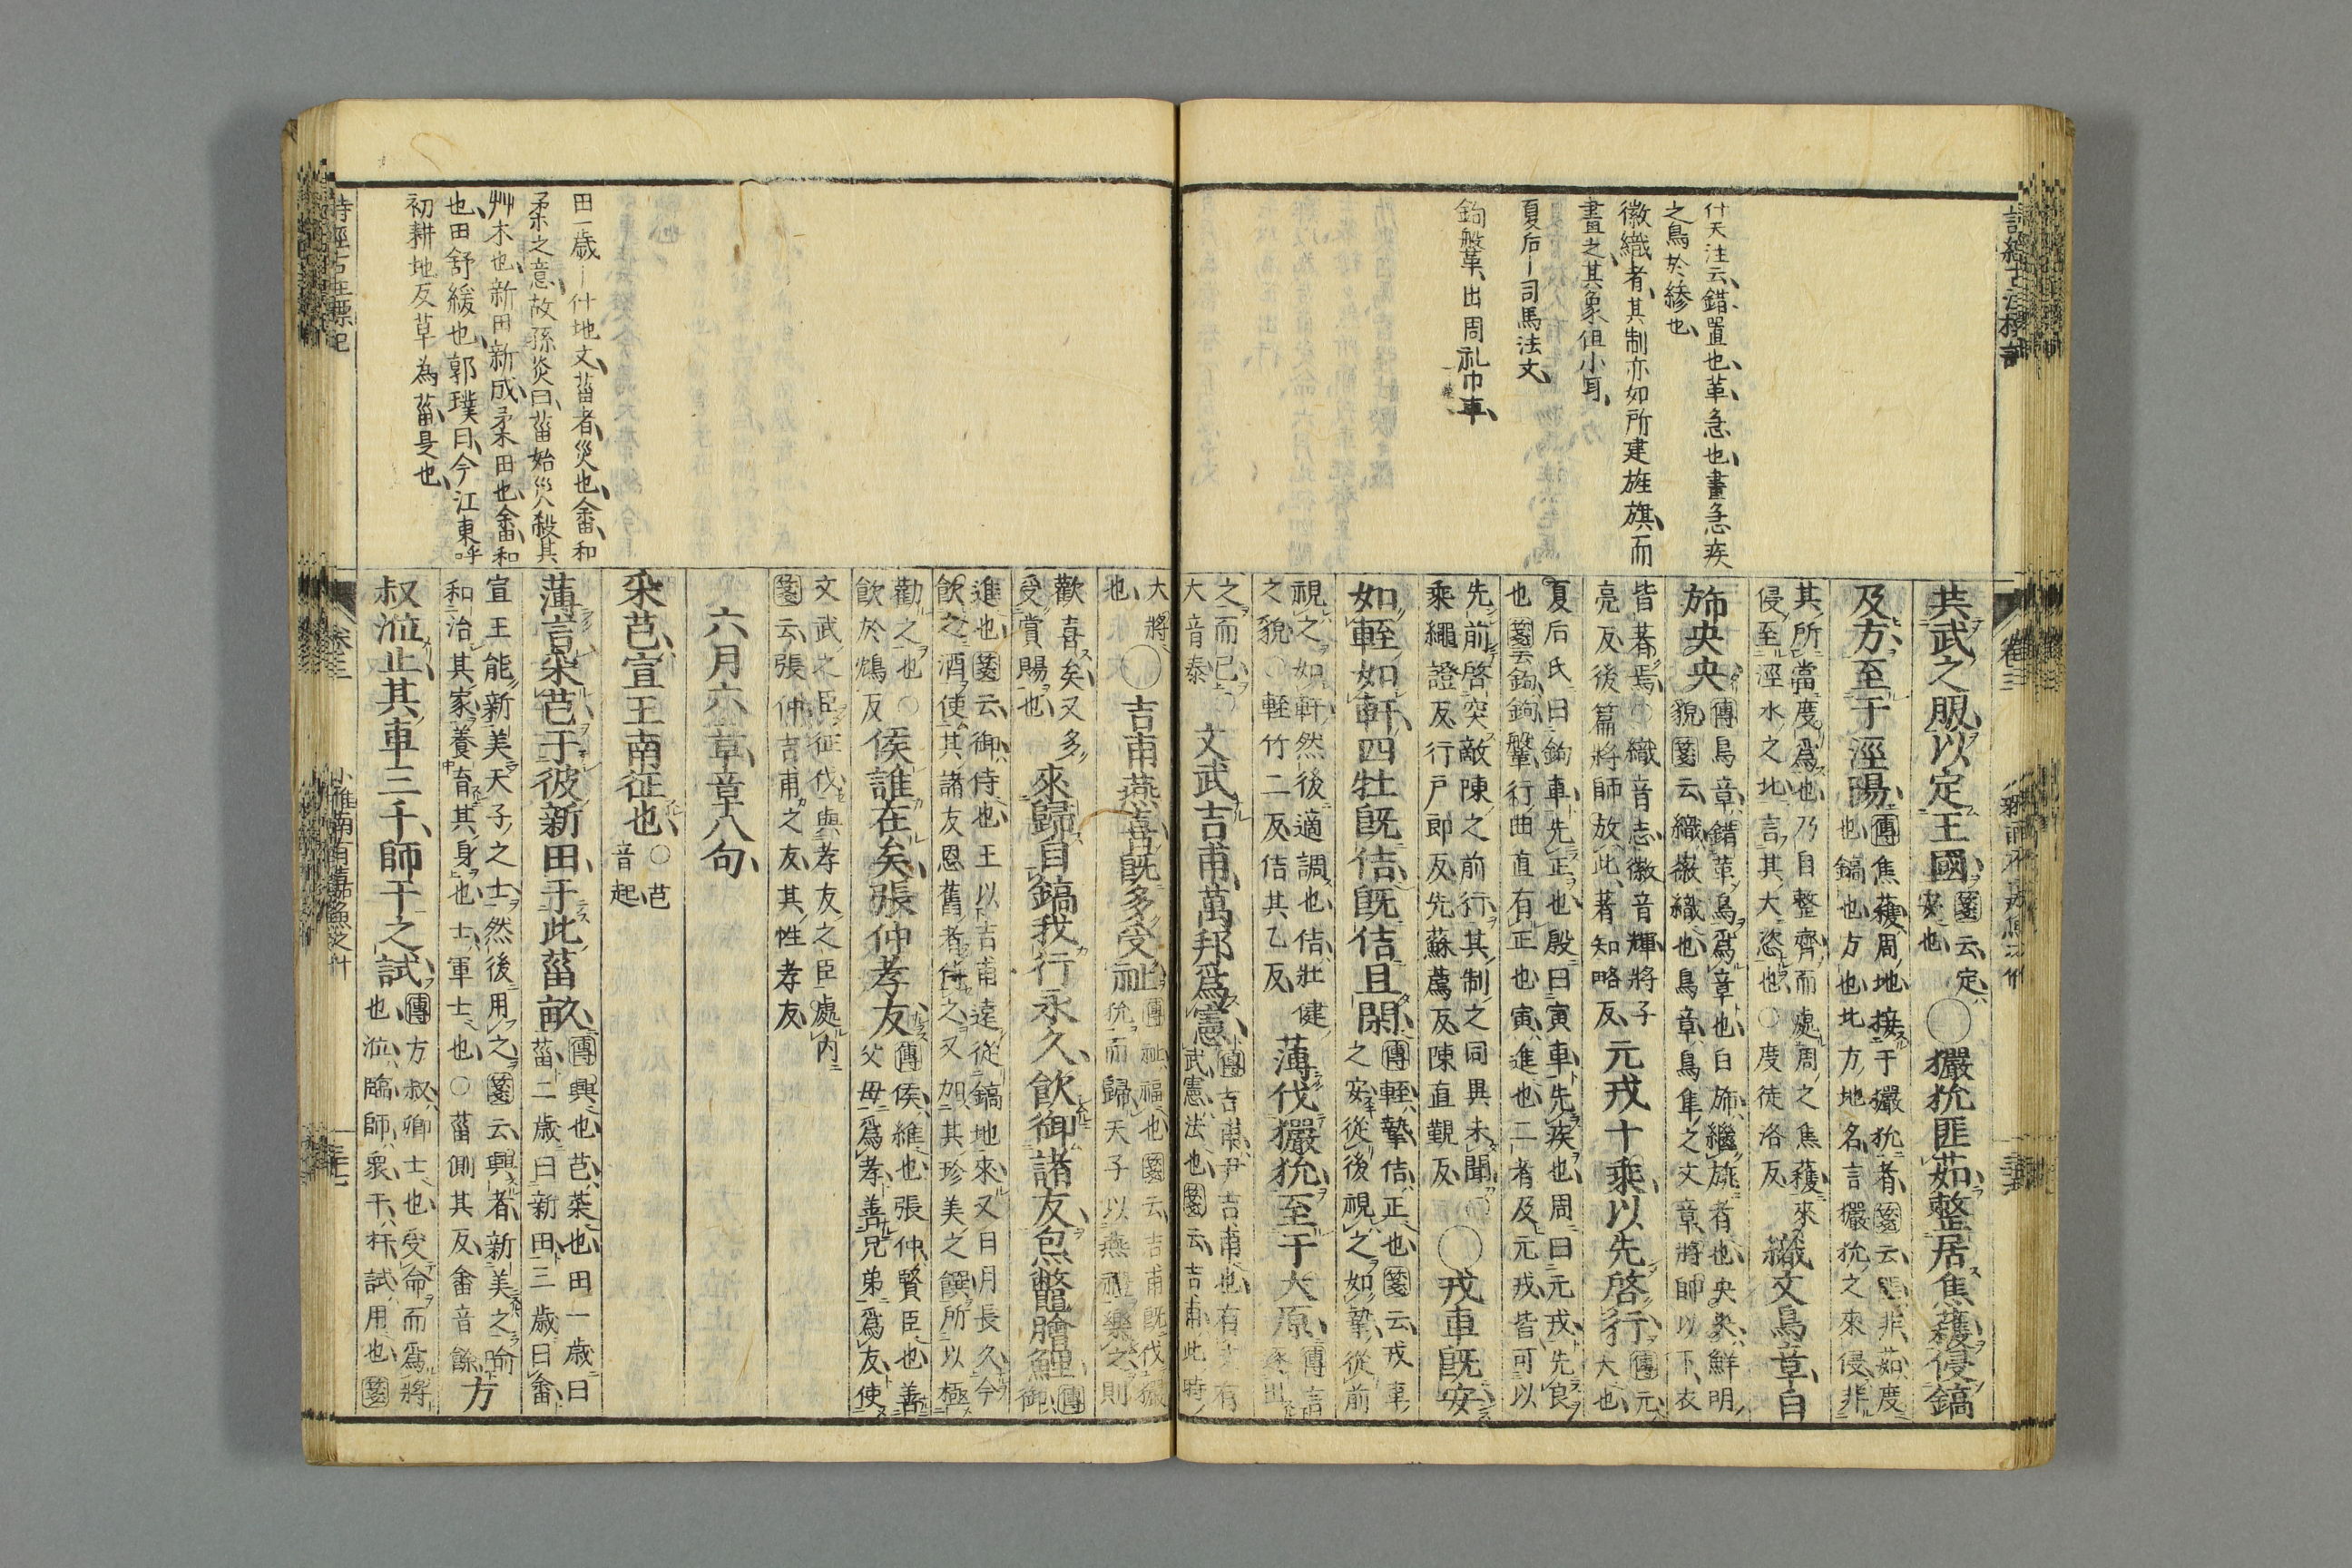 什天注云錯置也革急也畫急疾
之鳥於縿也
徽織者其制亦如所建旌旗而
畫之其象但小耳
夏后ー司馬法文
鉤股革出周礼巾車
共武之服以定王國
箋云定
安也
○玁狁匪茹整居焦穫侵鎬
及方至于涇陽
傳焦穫周地接于玁狁者箋云匪非茹度
也鎬也方也北方地名言玁狁之來侵非
其所當度爲也乃自整齊而處周之焦穫來
侵至涇水之北言其大恣也○度徒洛反
織文鳥章白
斾央央
傳鳥章錯革鳥爲章也白斾繼旐者也央央鮮明
貌箋云織徽織也鳥章鳥隼之文章將師以下衣
皆著焉○織音志徽音輝將子
亮反後篇將師放此著知略反
元戎十乘以先啓行
傳元
大也
夏后氏曰鉤車先正也殷曰寅車先疾也周曰元戎先良
也箋云鉤鉤鞶行曲直有正也寅進也二者及元戎皆可以
先前啓突敵陳之前行其制之同異未聞○
乘繩證反行戸郎反先蘇薦反陳直覲反
○戎車既安
如輊如軒四牡既佶既佶且閑
傳輊摯佶正也箋云戎車
之安從後視之如摯從前
視之如軒然後適調也佶壯健
之貌○輊竹二反佶其乙反
薄伐玁狁至于大原
傳言
逐出
之而已○
大音泰
文武吉甫萬邦爲憲
傳吉甫尹吉甫也有文有
武憲法也箋云吉甫此時
大將
也
○吉甫燕喜既多受祉
傳祉福也箋云吉甫既伐玁
狁而歸天子以燕禮樂之則
歡喜矣又多
受賞賜也
來歸自鎬我行永久飮御諸友炰鼈膾鯉
傳
御
進也箋云御侍也王以吉甫遠從鎬地來又日月長久今
飮之酒使其諸友恩舊者侍之又加其珍美之饌所以極
勸之也○
飮於鴆反
侯誰在矣張仲孝友
傳侯維也張仲賢臣也善
父母爲孝善兄弟爲友使
文武之臣征伐與孝友之臣處内
箋云張仲吉甫之友其性孝友
六月六章章八句
采芑宣王南征也
○芑
音起
薄言采芑于彼新田于此菑畝
傳興也芑菜也田一歲曰
菑二歲曰新田三歲曰畬
宣王能新美天子之士然後用之箋云興者新美之喻
和治其家養育其身也士軍士也○菑側其反畬音餘
方
叔涖止其車三千師干之試
傳方叔卿士也受命而爲將
也涖臨師衆干扞試用也箋
田一歲ー什地文菑者災也畬和
柔之意故孫炎曰菑始災殺其
艸木也新田新成柔田也畬和
也田舒緩也郭璞曰今江東呼
初耕地反草為菑是也
詩經古注標記
卷三
小雅南有嘉魚之什